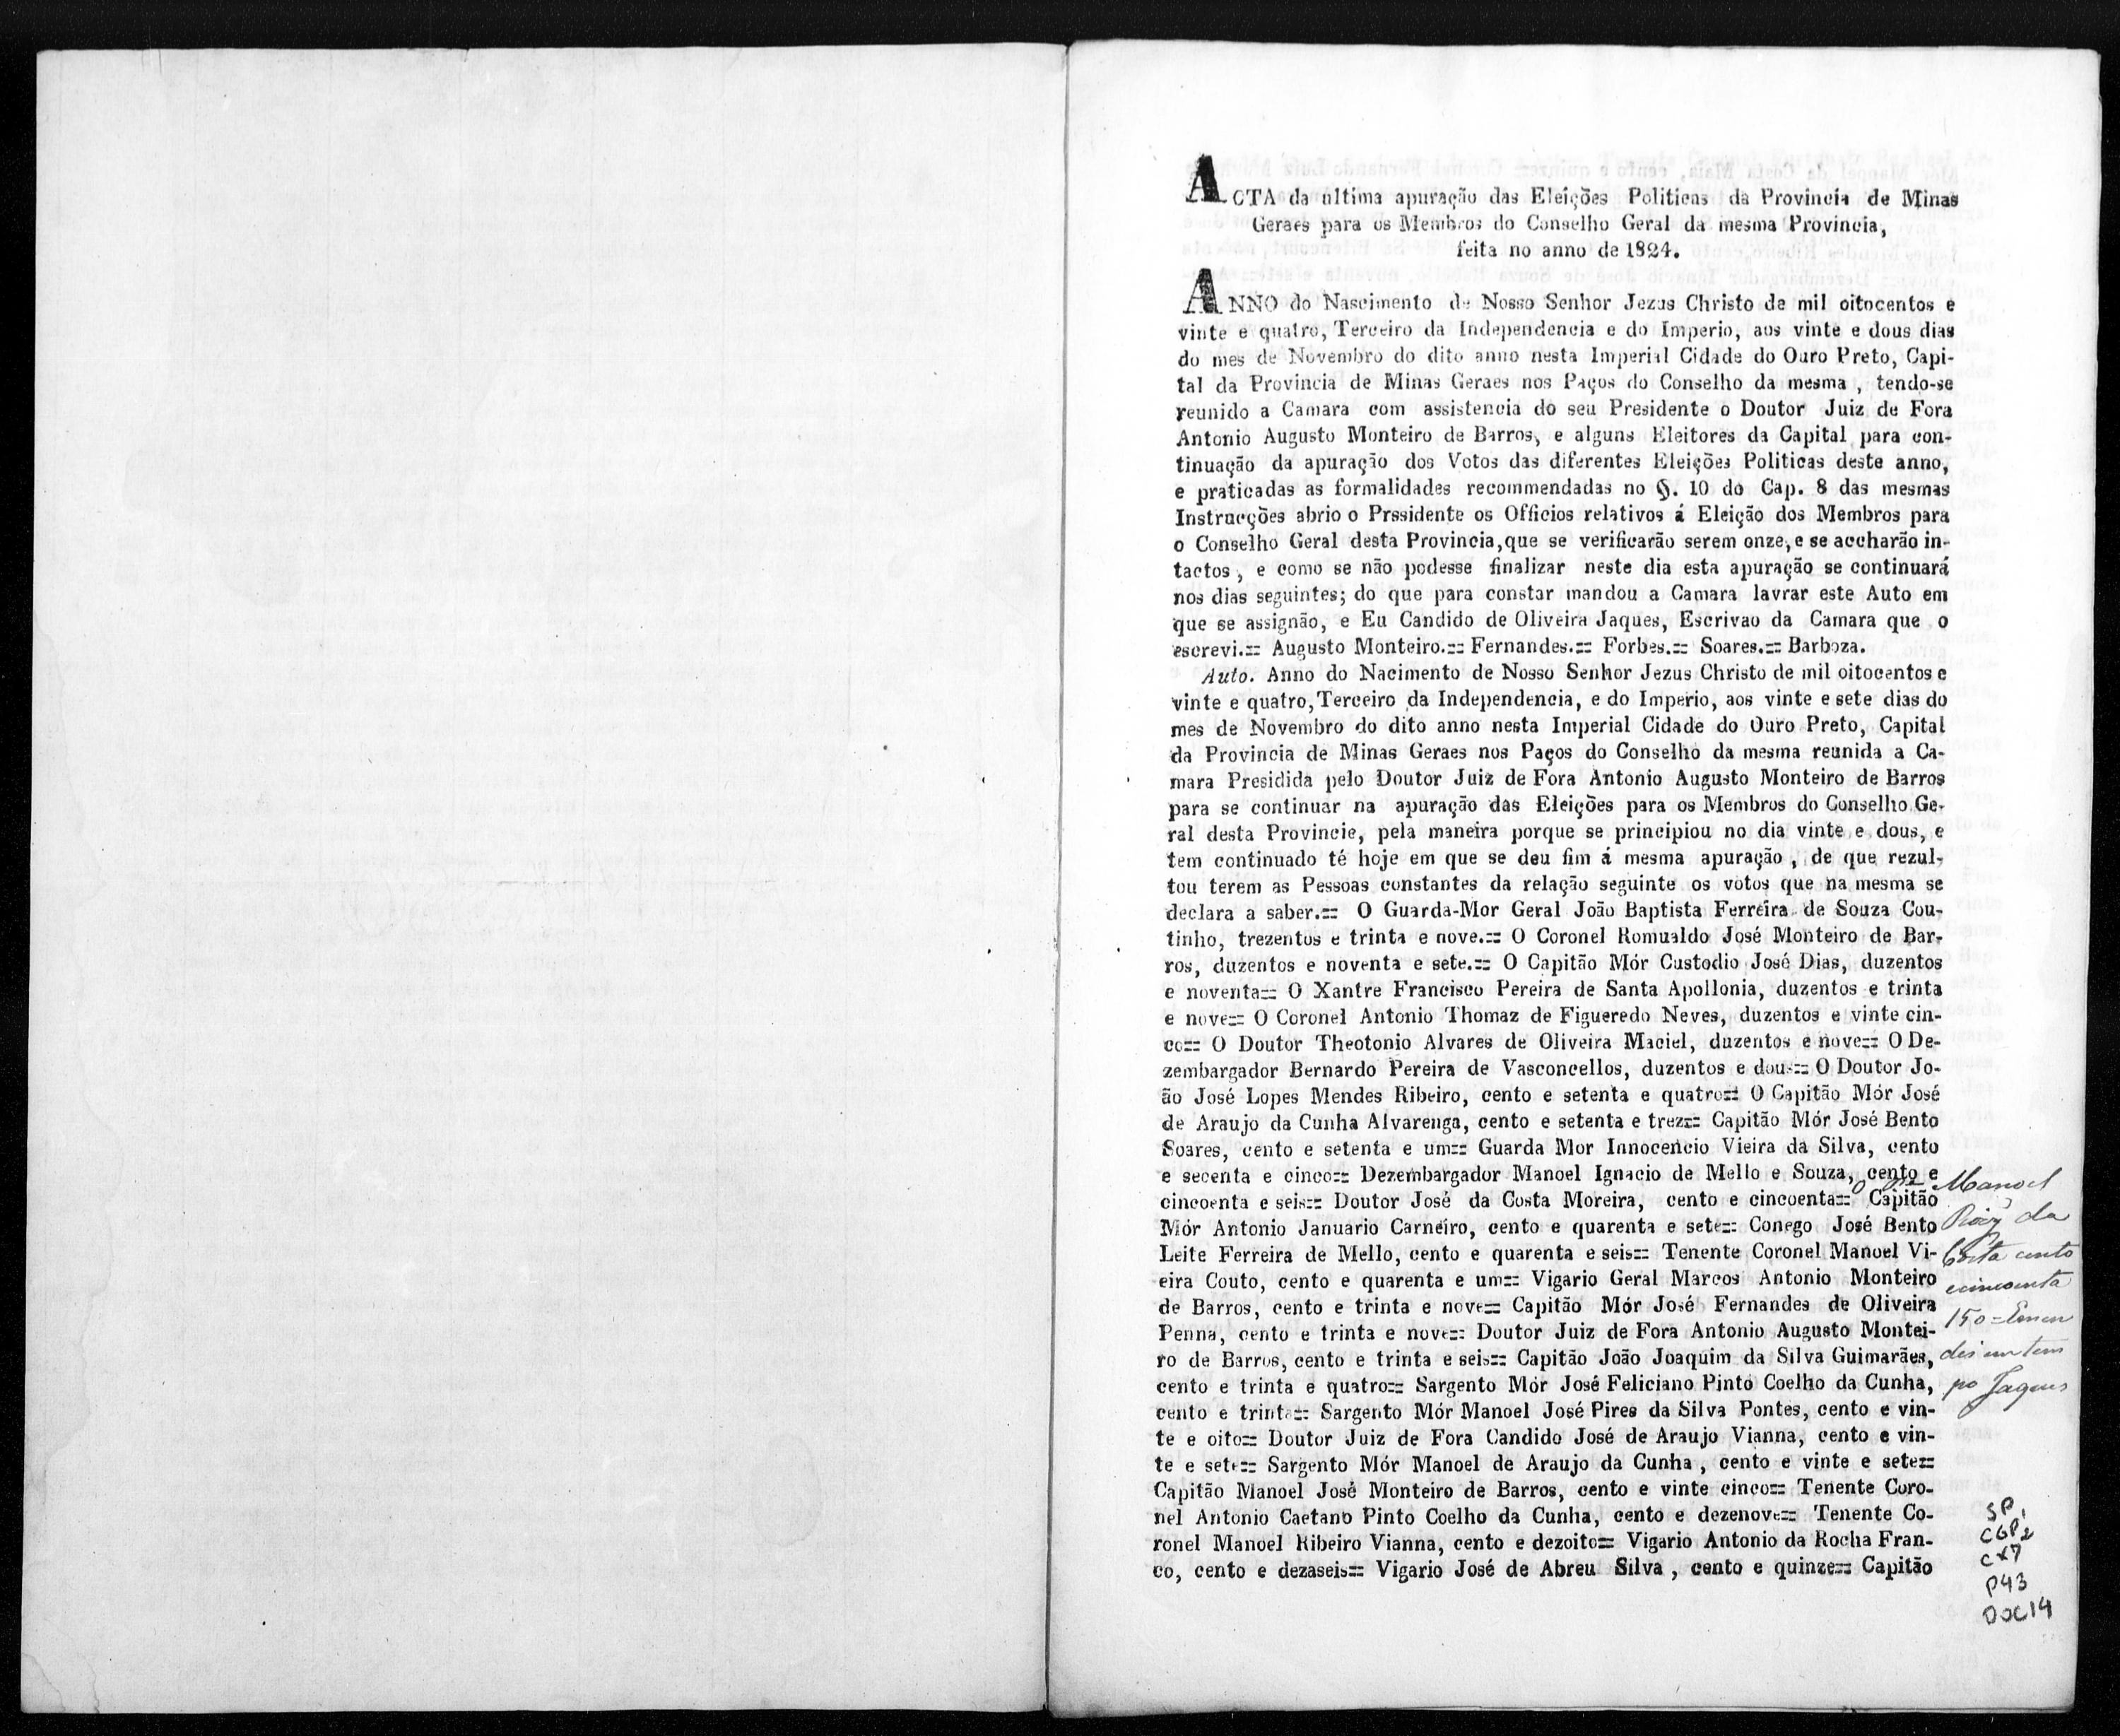 ACTA da ultima apuração das Eleições Politicas da Provincia de Minas
Geraes para os Membros do Conselho Geral da mesma Provincia,
feita no anno de 1824.
ANNO do Nascimento de Nosso Senhor Jezus Christo de mil oitocentos e
vinte e quatro, Terceiro da Independencia e do Imperio, aos vinte e dous dias
do mes de Novembro do dito anno nesta Imperial Cidade do Ouro Preto, Capi-
tal da Provincia de Minas Geraes nos Paços do Conselho da mesma , tendo-se
reunido a Camara com assistencia do seu Presidente o Doutor Juiz de Fora
Antonio Augusto Monteiro de Barros, e alguns Eleitores da Capital para con-
tinuação da apuração dos Votos das diferentes Eleições Politicas deste anno,
e praticadas as formalidades recommendadas no §. 10 do Cap. 8 das mesmas
Instrucções abrio o Prssidente os Officios relativos á Eleição dos Membros para
o Conselho Geral desta Provincia,que se verificarão serem onze, e se accharão in-
tactos , e como se não podesse finalizar neste dia esta apuração se continuará
nos dias seguintes; do que para constar mandou a Camara lavrar este Auto em
que se assignão, e Eu Candido de Oliveira Jaques, Escrivao da Camara que o
escrevi.== Augusto Monteiro.== Fernandes.== Forbes.== Soares.== Barboza.
Auto. Anno do Nacimento de Nosso Senhor Jezus Christo de mil oitocentos e
vinte e quatro, Terceiro da Independencia, e do Imperio, aos vinte e sete dias do
mes de Novembro do dito anno nesta Imperial Cidade do Ouro Preto, Capital
da Provincia de Minas Geraes nos Paços do Conselho da mesma reunida a Ca-
mara Presidida pelo Doutor Juiz de Fora Antonio Augusto Monteiro de Barros
para se continuar na apuração das Eleições para os Membros do Conselho Ge-
ral desta Provincie, pela maneira porque se principiou no dia vinte e dous, e
tem continuado té hoje em que se deu fim á mesma apuração , de que rezul-
tou terem as Pessoas constantes da relação seguinte os votos que na mesma se
declara a saber.== O Guarda-Mor Geral João Baptista Ferreira de Souza Cou-
tinho, trezentos e trinta e nove.== O Coronel Romualdo José Monteiro de Bar-
ros, duzentos e noventa e sete.== O Capitão Mór Custodio José Dias, duzentos
e noventa== O Xantre Francisco Pereira de Santa Apollonia, duzentos e trinta
e nove== O Coronel Antonio Thomaz de Figueredo Neves, duzentos e vinte cin-
co== O Doutor Theotonio Alvares de Oliveira Maciel, duzentos e nove== O De-
zembargador Bernardo Pereira de Vasconcellos, duzentos e dous== O Doutor Jo-
ão José Lopes Mendes Ribeiro, cento e setenta e quatro== O Capitão Mór José
de Araujo da Cunha Alvarenga, cento e setenta e trez== Capitão Mór José Bento
Soares, cento e setenta e um== Guarda Mor Innocencio Vieira da Silva, cento
e secenta e cinco== Dezembargador Manoel Ignacio de Mello e Souza, cento e
cincoenta e seis== Doutor José da Costa Moreira, cento e cincoenta== Capitão
Mór Antonio Januario Carneiro, cento e quarenta e sete== Conego José Bento
Leite Ferreira de Mello, cento e quarenta e seis== Tenente Coronel Manoel Vi-
eira Couto, cento e quarenta e um== Vigario Geral Marcos Antonio Monteiro
de Barros, cento e trinta e nove== Capitão Mór José Fernandes de Oliveira
Penna, cento e trinta e nove== Doutor Juiz de Fora Antonio Augusto Montei-
ro de Barros, cento e trinta e seis== Capitão João Joaquim da Silva Guimarães,
cento e trinta e quatro== Sargento Mór José Feliciano Pinto Coelho da Cunha,
cento e trinta== Sargento Mór Manoel José Pires da Silva Pontes, cento e vin-
te e oito== Doutor Juiz de Fora Candido José de Araujo Vianna, cento e vin-
te e sete== Sargento Mór Manoel de Araujo da Cunha , cento e vinte e sete==
Capitão Manoel José Monteiro de Barros, cento e vinte cinco== Tenente Coro-
nel Antonio Caetano Pinto Coelho da Cunha, cento e dezenove== Tenente Co-
ronel Manoel Ribeiro Vianna, cento e dezoito== Vigario Antonio da Rocha Fran-
co, cento e dezaseis== Vigario José de Abreu Silva , cento e quinze== Capitão
Manoel
Roiz da
Costa cento
ecincoenta
150=Emen
dei em tem
po Jaques
SP
CGP2
CX7
P43
DOC14